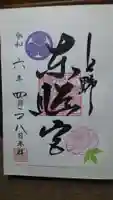 上野
東照宮
令和六年四月二八日